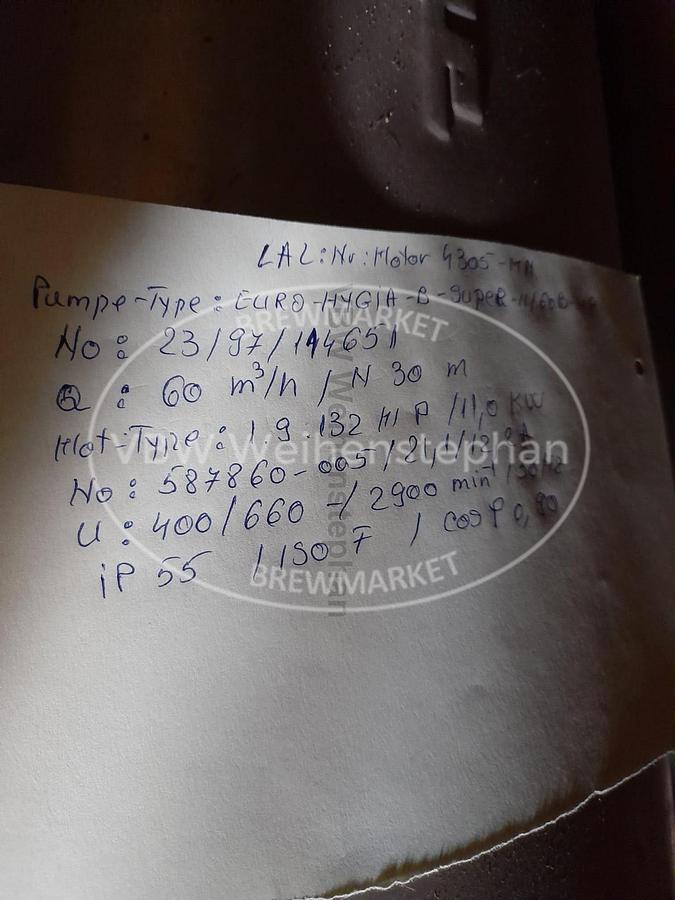 LAL:Nr:Motor 4305-MM
Pumpe-Type: EURO-HYGIA-B-SUPER-11/60B
No: 23/97/144651
Q: 60 m³/h / H 30 m
Mot-Type: 1.9.132 M P /11,0 KW
No: 587860-005/21,1/12,2A
U: 400/660 -/2900 min⁻¹/50Hz
iP 55 /ISO F / cos φ 0,90
BREWMARKET
VDW Weihenstephan
BREWMARKET